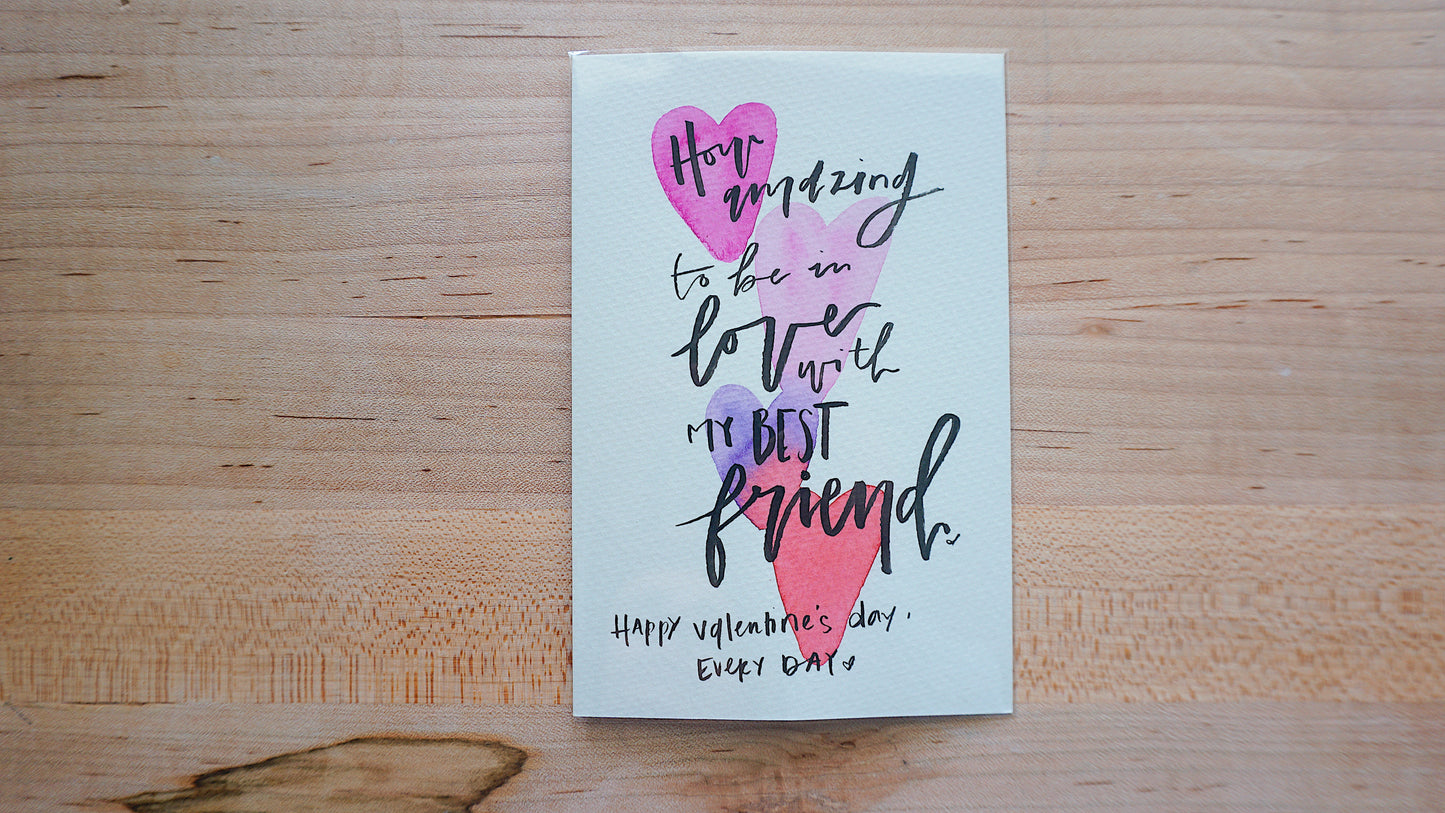 How
amazing
to be in
love with
MY BEST
friend.
HAPPY valentine's day.
EVERY DAY